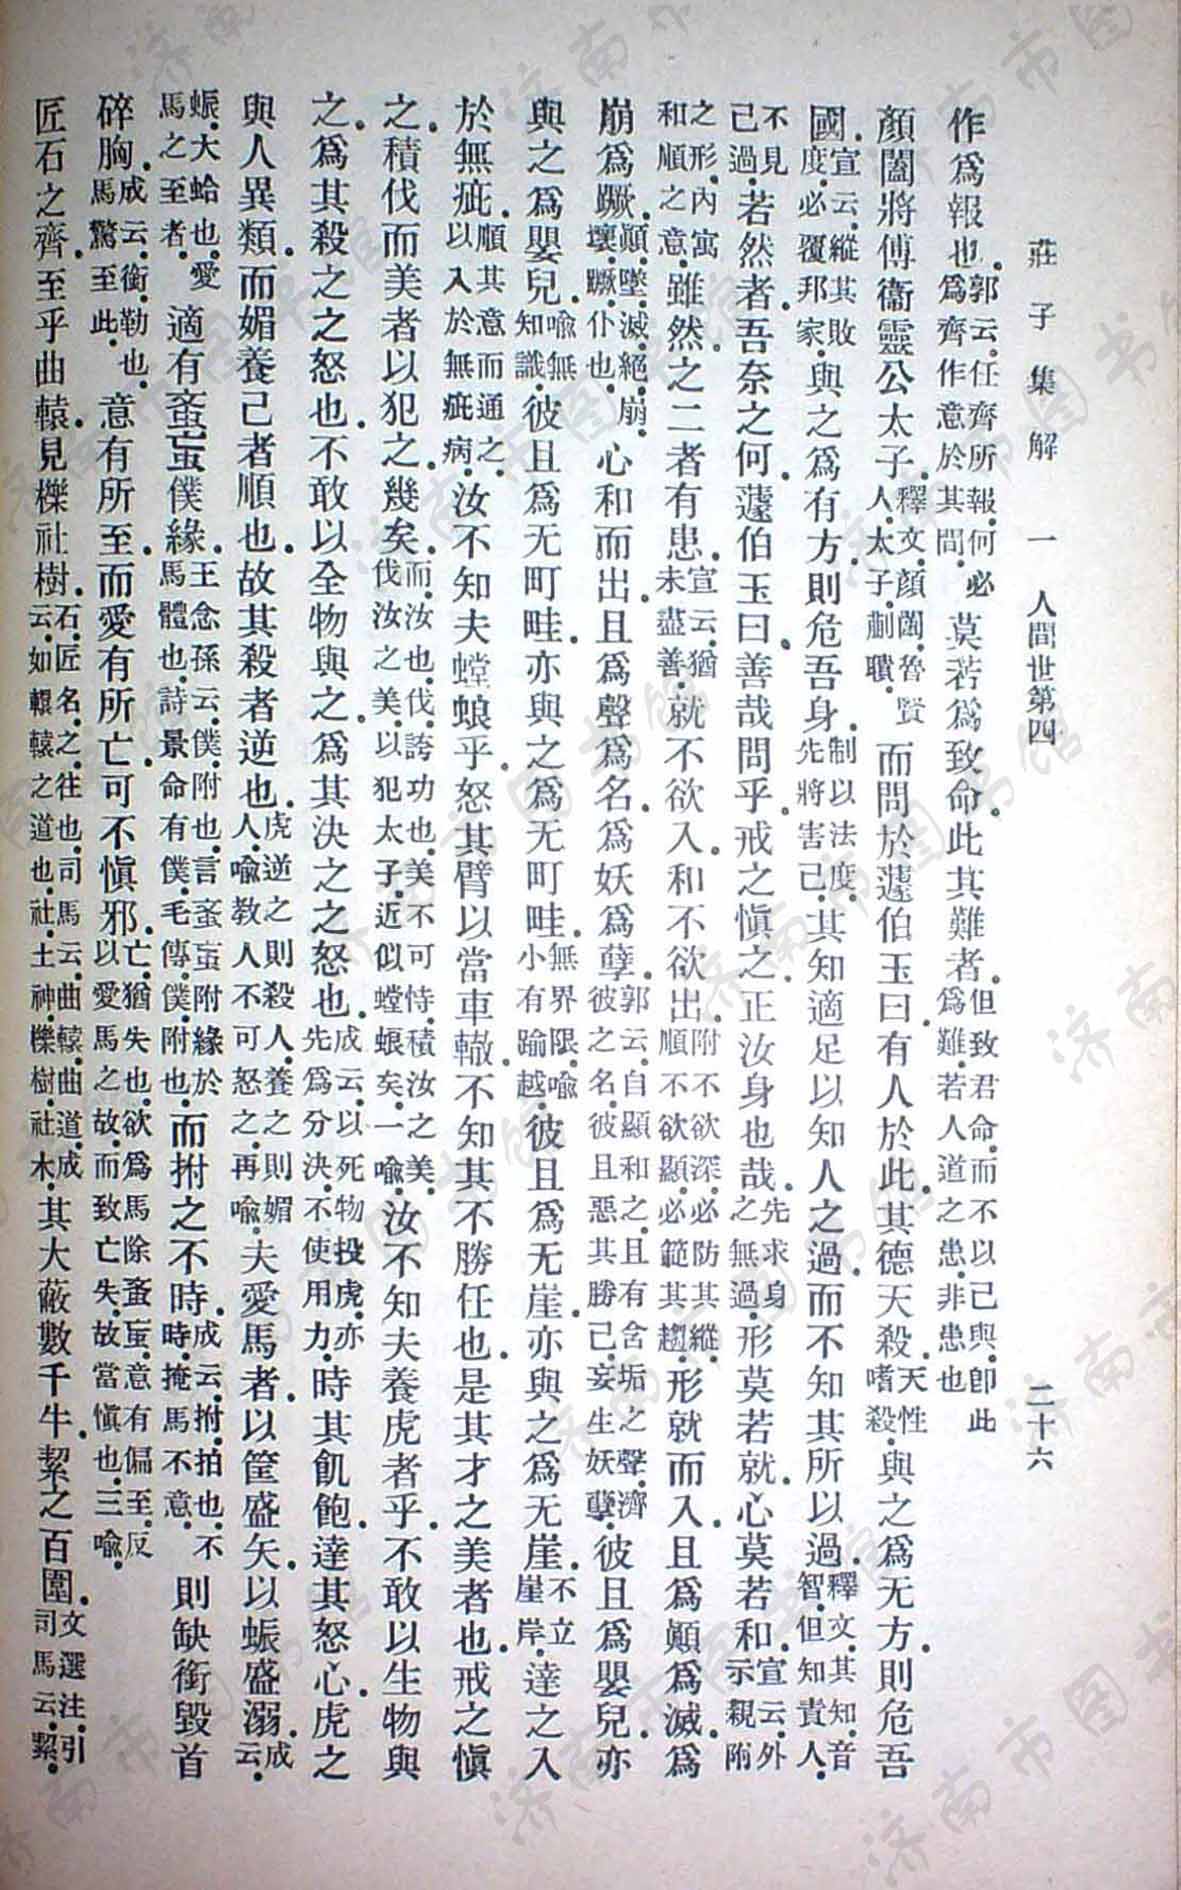 莊子集解 一 人間世第四 二十六
作爲報也。郭云。任齊所報。何必爲齊作意於其間。莫若爲致命。此其難者。但致君命。而不以己與。卽此爲難。若人道之患。非患也
顏闔將傅衞靈公太子。釋文。顏闔。魯賢人。太子。蒯聵。而問於蘧伯玉曰。有人於此。其德天殺。天性嗜殺。與之爲无方。則危吾
國。宣云。縱其敗度。必覆邦家。與之爲有方。則危吾身。制以法度。先將害己。其知適足以知人之過。而不知其所以過。釋文。其知。音智。但知責人。
不見己過。若然者。吾奈之何。蘧伯玉曰。善哉問乎。戒之愼之。正汝身也哉。先求身之無過。形莫若就。心莫若和。宣云。外示親附
之形。內寓和順之意。雖然。之二者有患。宣云。猶未盡善。就不欲入。和不欲出。附不欲深。必防其縱。順不欲顯。必範其趨。形就而入。且爲顚爲滅。爲
崩爲蹶。顚。墜。滅。絕。崩。壞。蹶。仆也。心和而出。且爲聲爲名。爲妖爲孽。郭云。自顯和之。且有含垢之聲。濟彼之名。彼且惡其勝己。妄生妖孽。彼且爲嬰兒。亦
與之爲嬰兒。喻無知識。彼且爲无町畦。亦與之爲无町畦。無界限。喻小有踰越。彼且爲无崖。亦與之爲无崖。不立崖岸。達之入
於無疵。順其意而通之。以入於無疵病。汝不知夫螳蜋乎。怒其臂以當車轍。不知其不勝任也。是其才之美者也。戒之愼
之。積伐而美者以犯之。幾矣。而。汝也。伐。誇功也。美不可恃。積汝之美。伐汝之美。以犯太子。近似螳蜋矣。一喻。汝不知夫養虎者乎。不敢以生物與
之。爲其殺之之怒也。不敢以全物與之。爲其決之之怒也。成云。以死物投虎。亦先爲分決。不使用力。時其飢飽。達其怒心。虎之
與人異類。而媚養己者順也。故其殺者逆也。虎逆之則殺人。養之則媚人。喻教人不可怒之。再喻。夫愛馬者。以筐盛矢。以蜄盛溺。成云。
蜄。大蛤也。愛馬之至者。適有蚉䖟僕緣。王念孫云。僕。附也。言蚉䖟附緣於馬體也。詩景命有僕。毛傳。僕。附也。而拊之不時。成云。拊。拍也。不時。掩馬不意。則缺銜毀首
碎胸。成云。銜。勒也。馬驚至此。意有所至。而愛有所亡。可不愼邪。亡。猶失也。欲爲馬除蚉䖟。意有偏至。反以愛馬之故。而致亡失。故當愼也。三喻。
匠石之齊。至乎曲轅。見櫟社樹。石。匠名。之。往也。司馬云。曲轅。曲道。成云。如轘轅之道也。社。土神。櫟樹。社木。其大蔽數千牛。絜之百圍。文選注。引司馬云。絜。